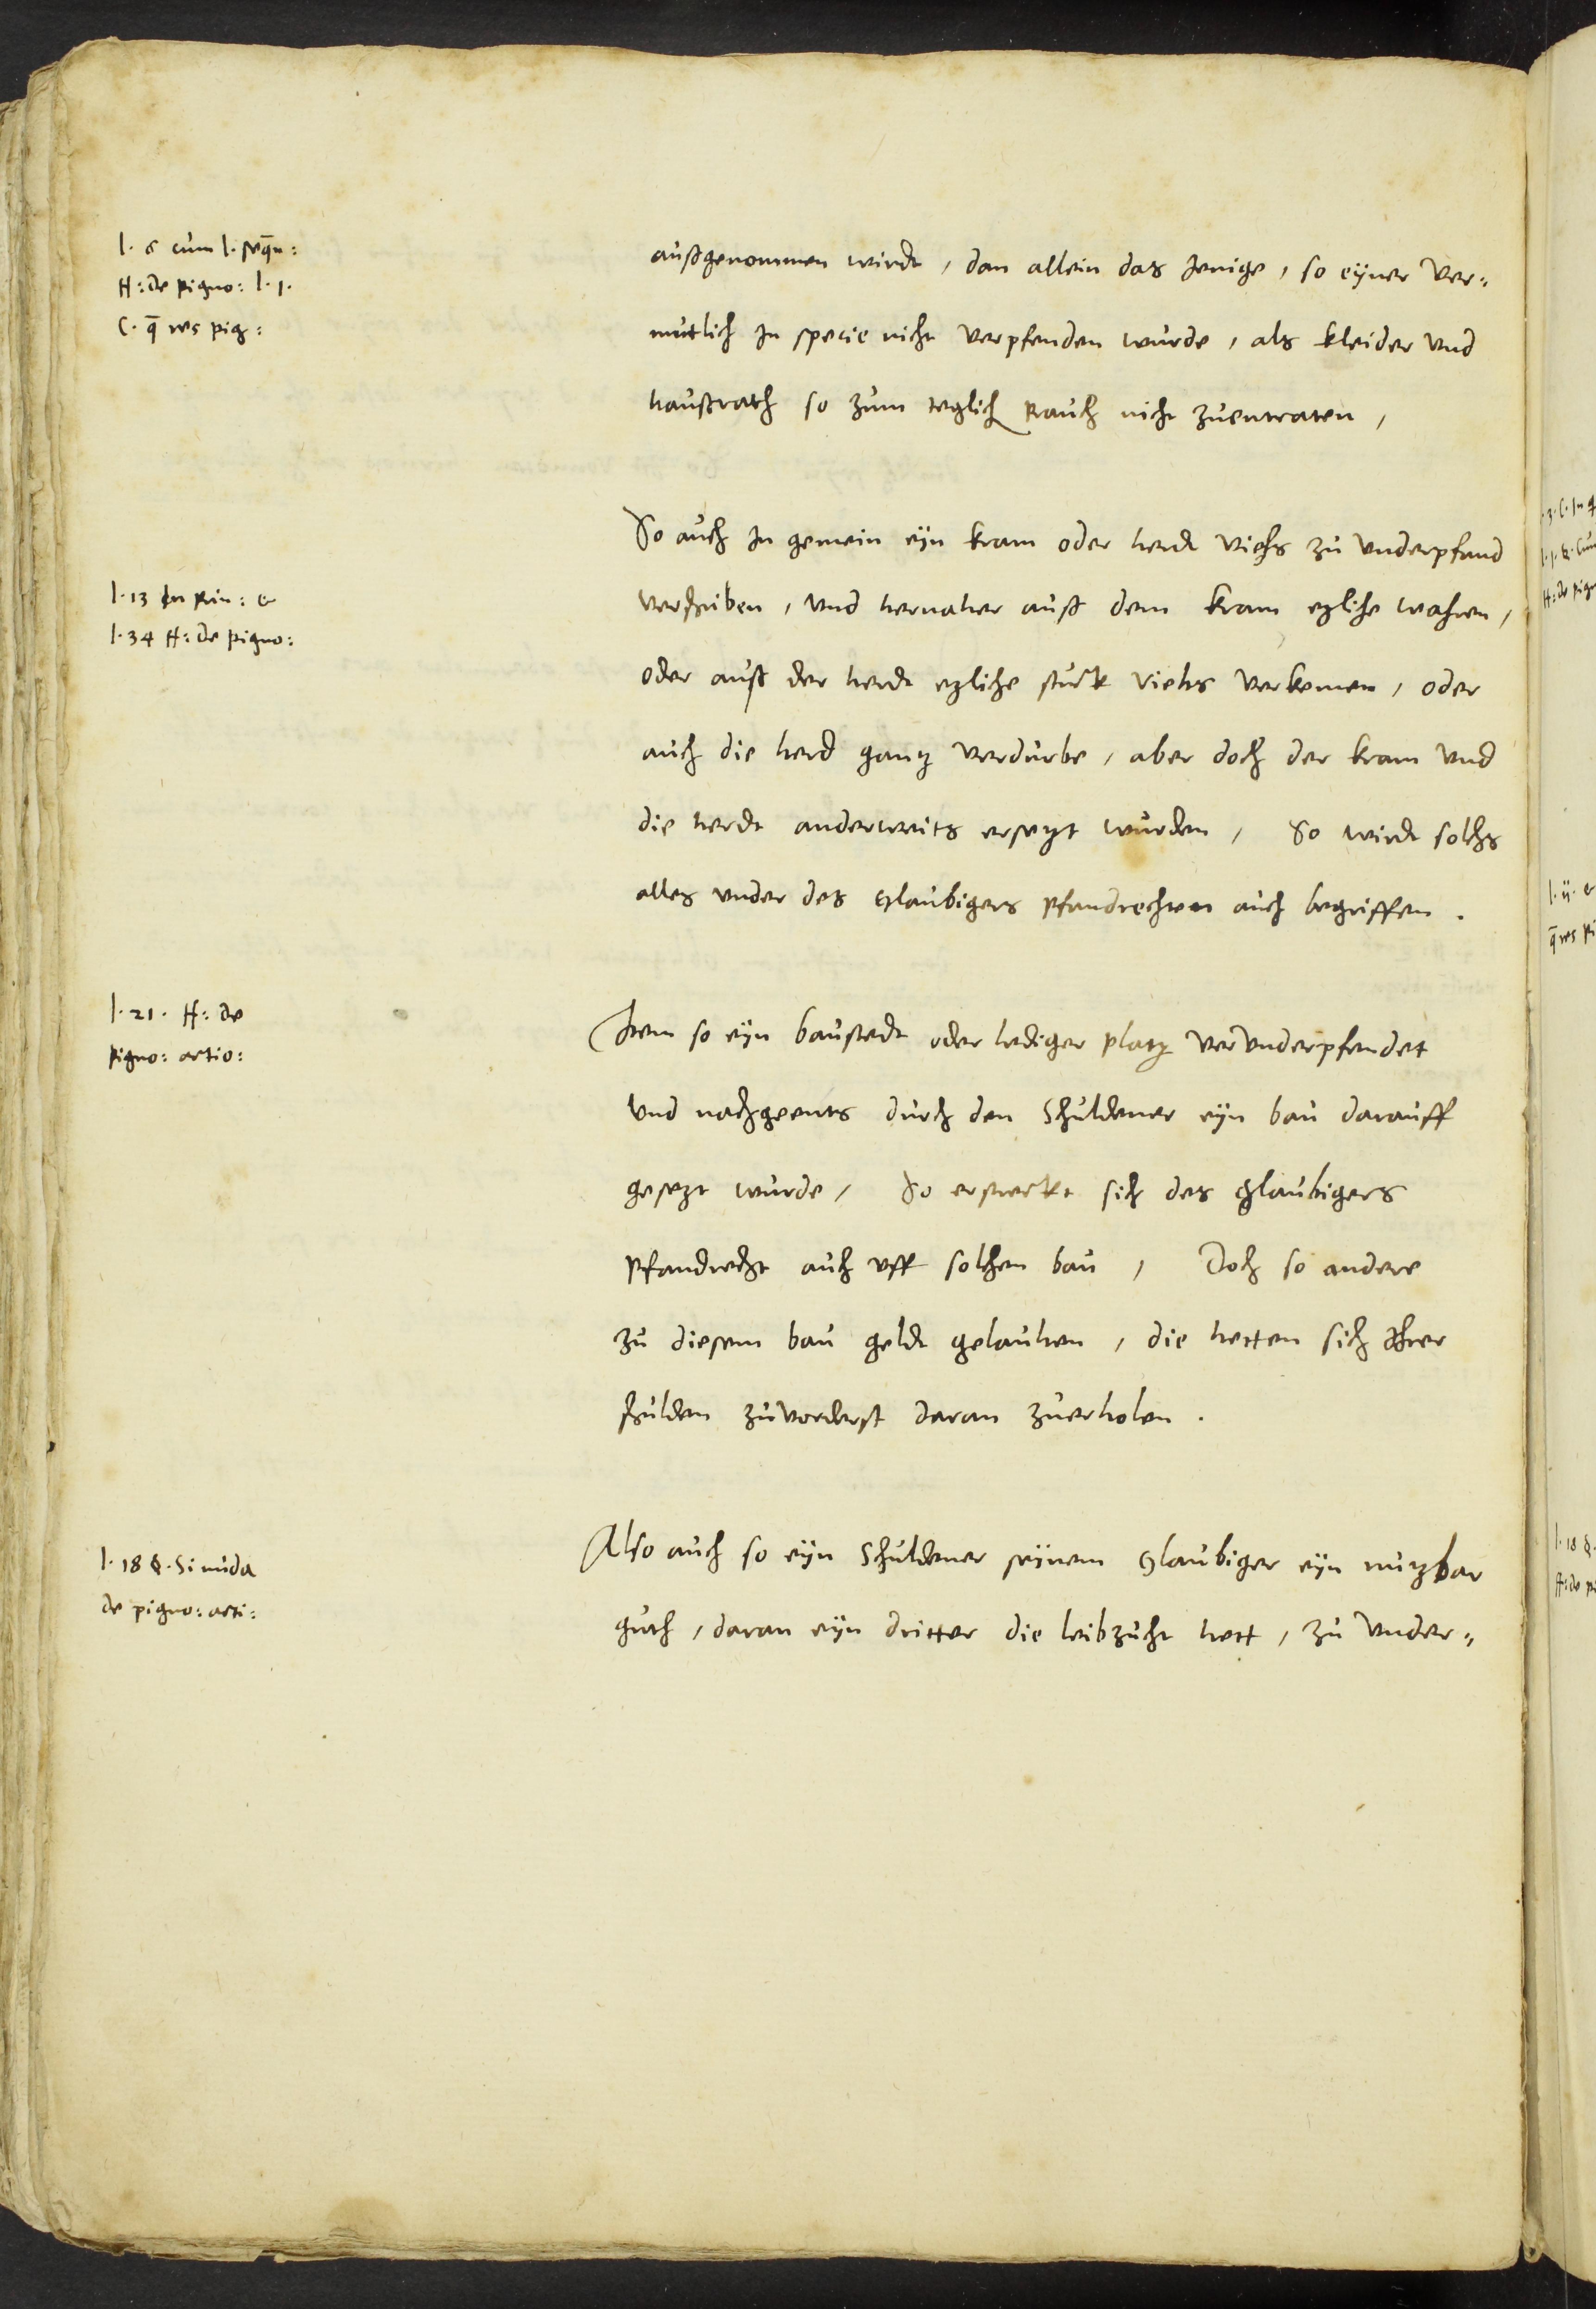 l. 6 cum l. seqn:
ff: de pigno: l. 1.
C. q̄ res pig:
außgenommen wirdt, dan allein das Jenige, so eÿner ver=
mutlich In specie nicht verpfenden wurde, als kleider vnd
haußrath so zum teglich brauch nicht zuentraten,
So auch In gemein eÿn kram oder herdt viehs zu vnderpfand
l. 13 In prin: &
l. 34 ff: de pigno:
verschriben, vnd hernaher auß dem kram ezliche wahren,
oder auß der herdt ezliche stuck viehs verkemen, oder
auch die herd gantz verdurbe, aber doch der kram vnd
die herdt anderweits ersezt wurden, So wirdt solchs
alles vnder des glaubigers pfandrechten auch begriffen.
l. 21. ff: de
pigno: actio:
Item so eÿn baustedt oder lediger platz vervnderpfendet
vnd nachgeents durch den Schuldener eÿn bau darauff
gesezt wurde, So erstreckt sich des glaubigers
pfandrecht auch vff solchen bau, Doch so andere
zu diesem bau geldt gelauhen, die hetten sich Ihrer
schulden zuvorderst daran zuerholen.
l. 18 §. Si nuda
de pigno: acti:
Also auch so eÿn Schuldener seÿnem glaubiger eÿn nutzbar
guth, daran eÿn dritter die leibzucht hett, zu vnder=